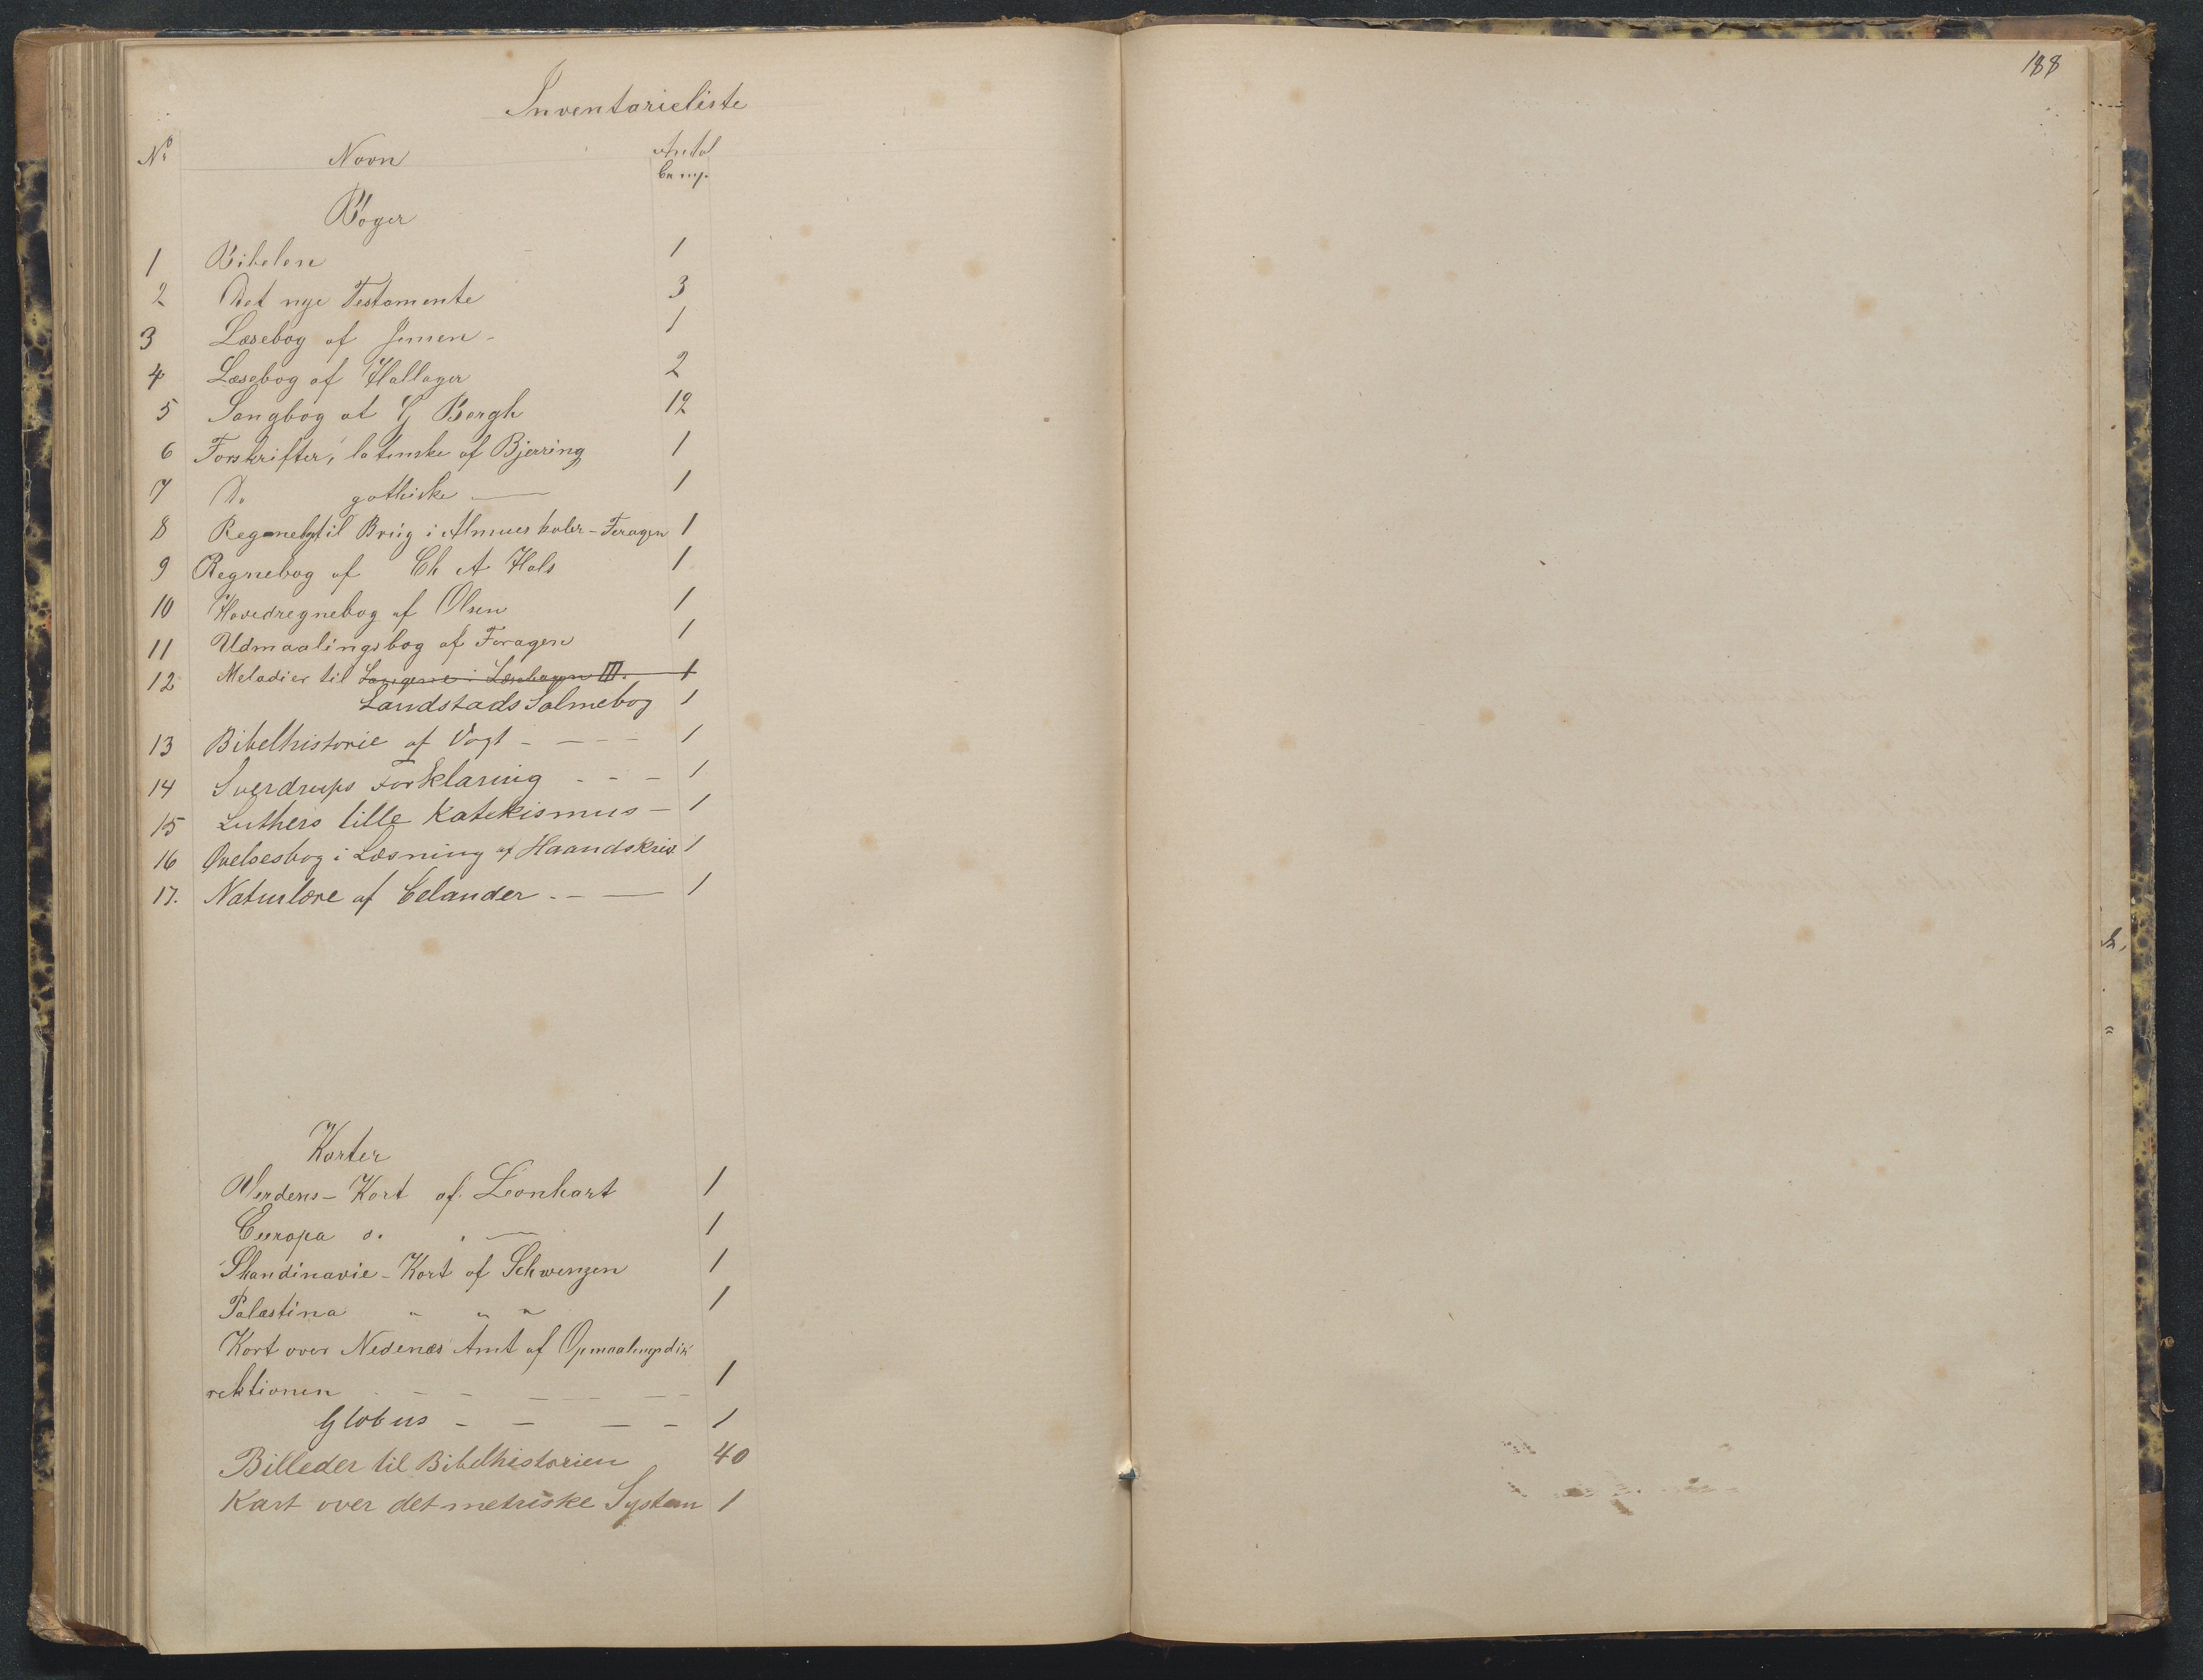 188
Inventarieliste
No Navn Antal
Exmp.
Bøger
1 Bibelen 1
2 Det nye Testamente 3
3 Læsebog af Jensen - 1
4 Læsebog af Hallager 2
5 Sangbog af G Bergh 12
6 Forskrifter, latinske af Bjerring 1
7 Do gothiske — 1
8 Regnebg til Brug i Almueskoler - Feragen 1
9 Regnebog af Ch A Hals 1
10 Hovedregnebog af Olsen 1
11 Udmaalingsbog af Feragen 1
12 Melodier til Sangene i Læsebogen III. 1
Landstads Salmebog 1
13 Bibelhistorie af Vogt - - - - 1
14 Sverdrups Forklaring - - - 1
15 Luthers lille Katekismus - 1
16 Øvelsesbog i Læsning af Haandskriv. 1
17. Naturlære af Celander - - — 1
Karter
Verdens - Kort af Leonhart 1
Europa do " — 1
Skandinavie - Kort af Schwenzen 1
Palæstina " " " 1
Kort over Nedenæs Amt af Opmaalingsdi
rektionen - - - - - - 1
Globus - - - - 1
Billeder til Bibelhistorien 40
Kart over det metriske System 1